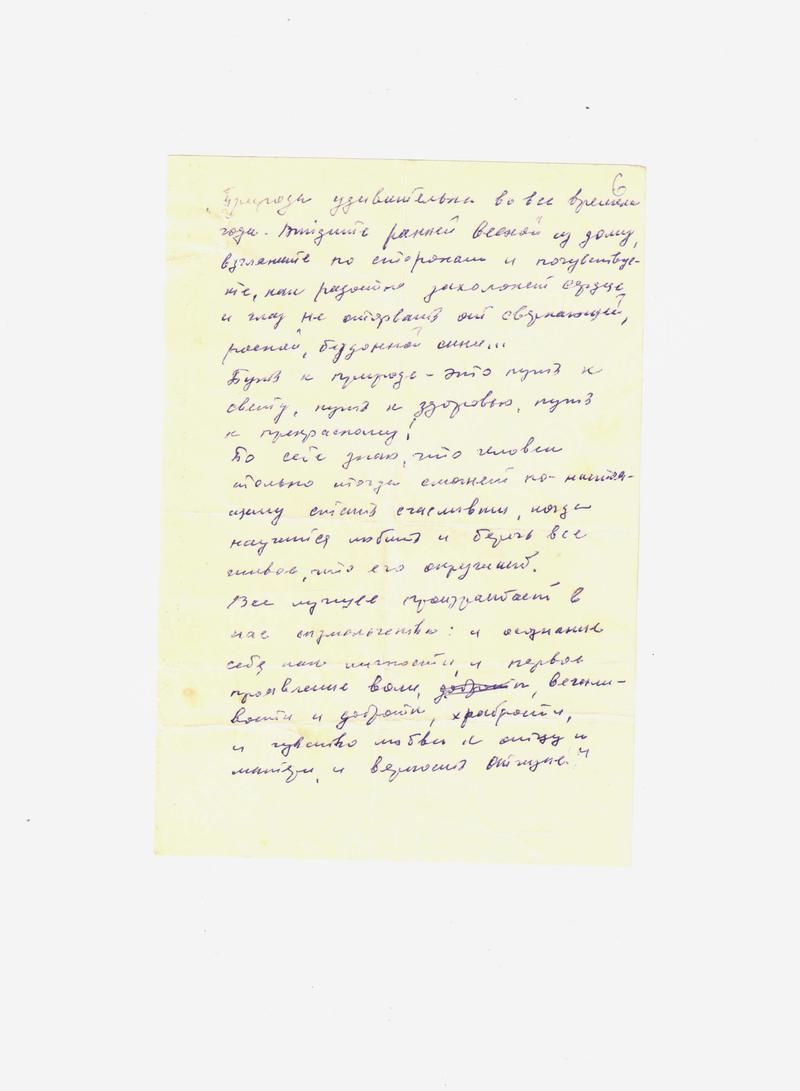 6
Природа удивительна во все времена
года. Выйдите ранней весной из дому,
взгляните по сторонам и почувствуе-
те, как радостно захолонет сердце
и глаз не оторвать от сверкающей,
ясной, бездонной сини...
Путь к природе - это путь к
свету, путь к здоровью, путь
к прекрасному!
По себе знаю, что человек
только тогда сможет по-настоя-
щему стать счастливым, когда
научится любить и беречь все
живое, что его окружает.
Все лучшее произрастает в
нас сызмальства: и осознание
себя как личности, и первое
проявление воли, доброты, вежли-
вости и доброты, храбрости,
и чувство любви к отцу и
матери, и верность отчизне."